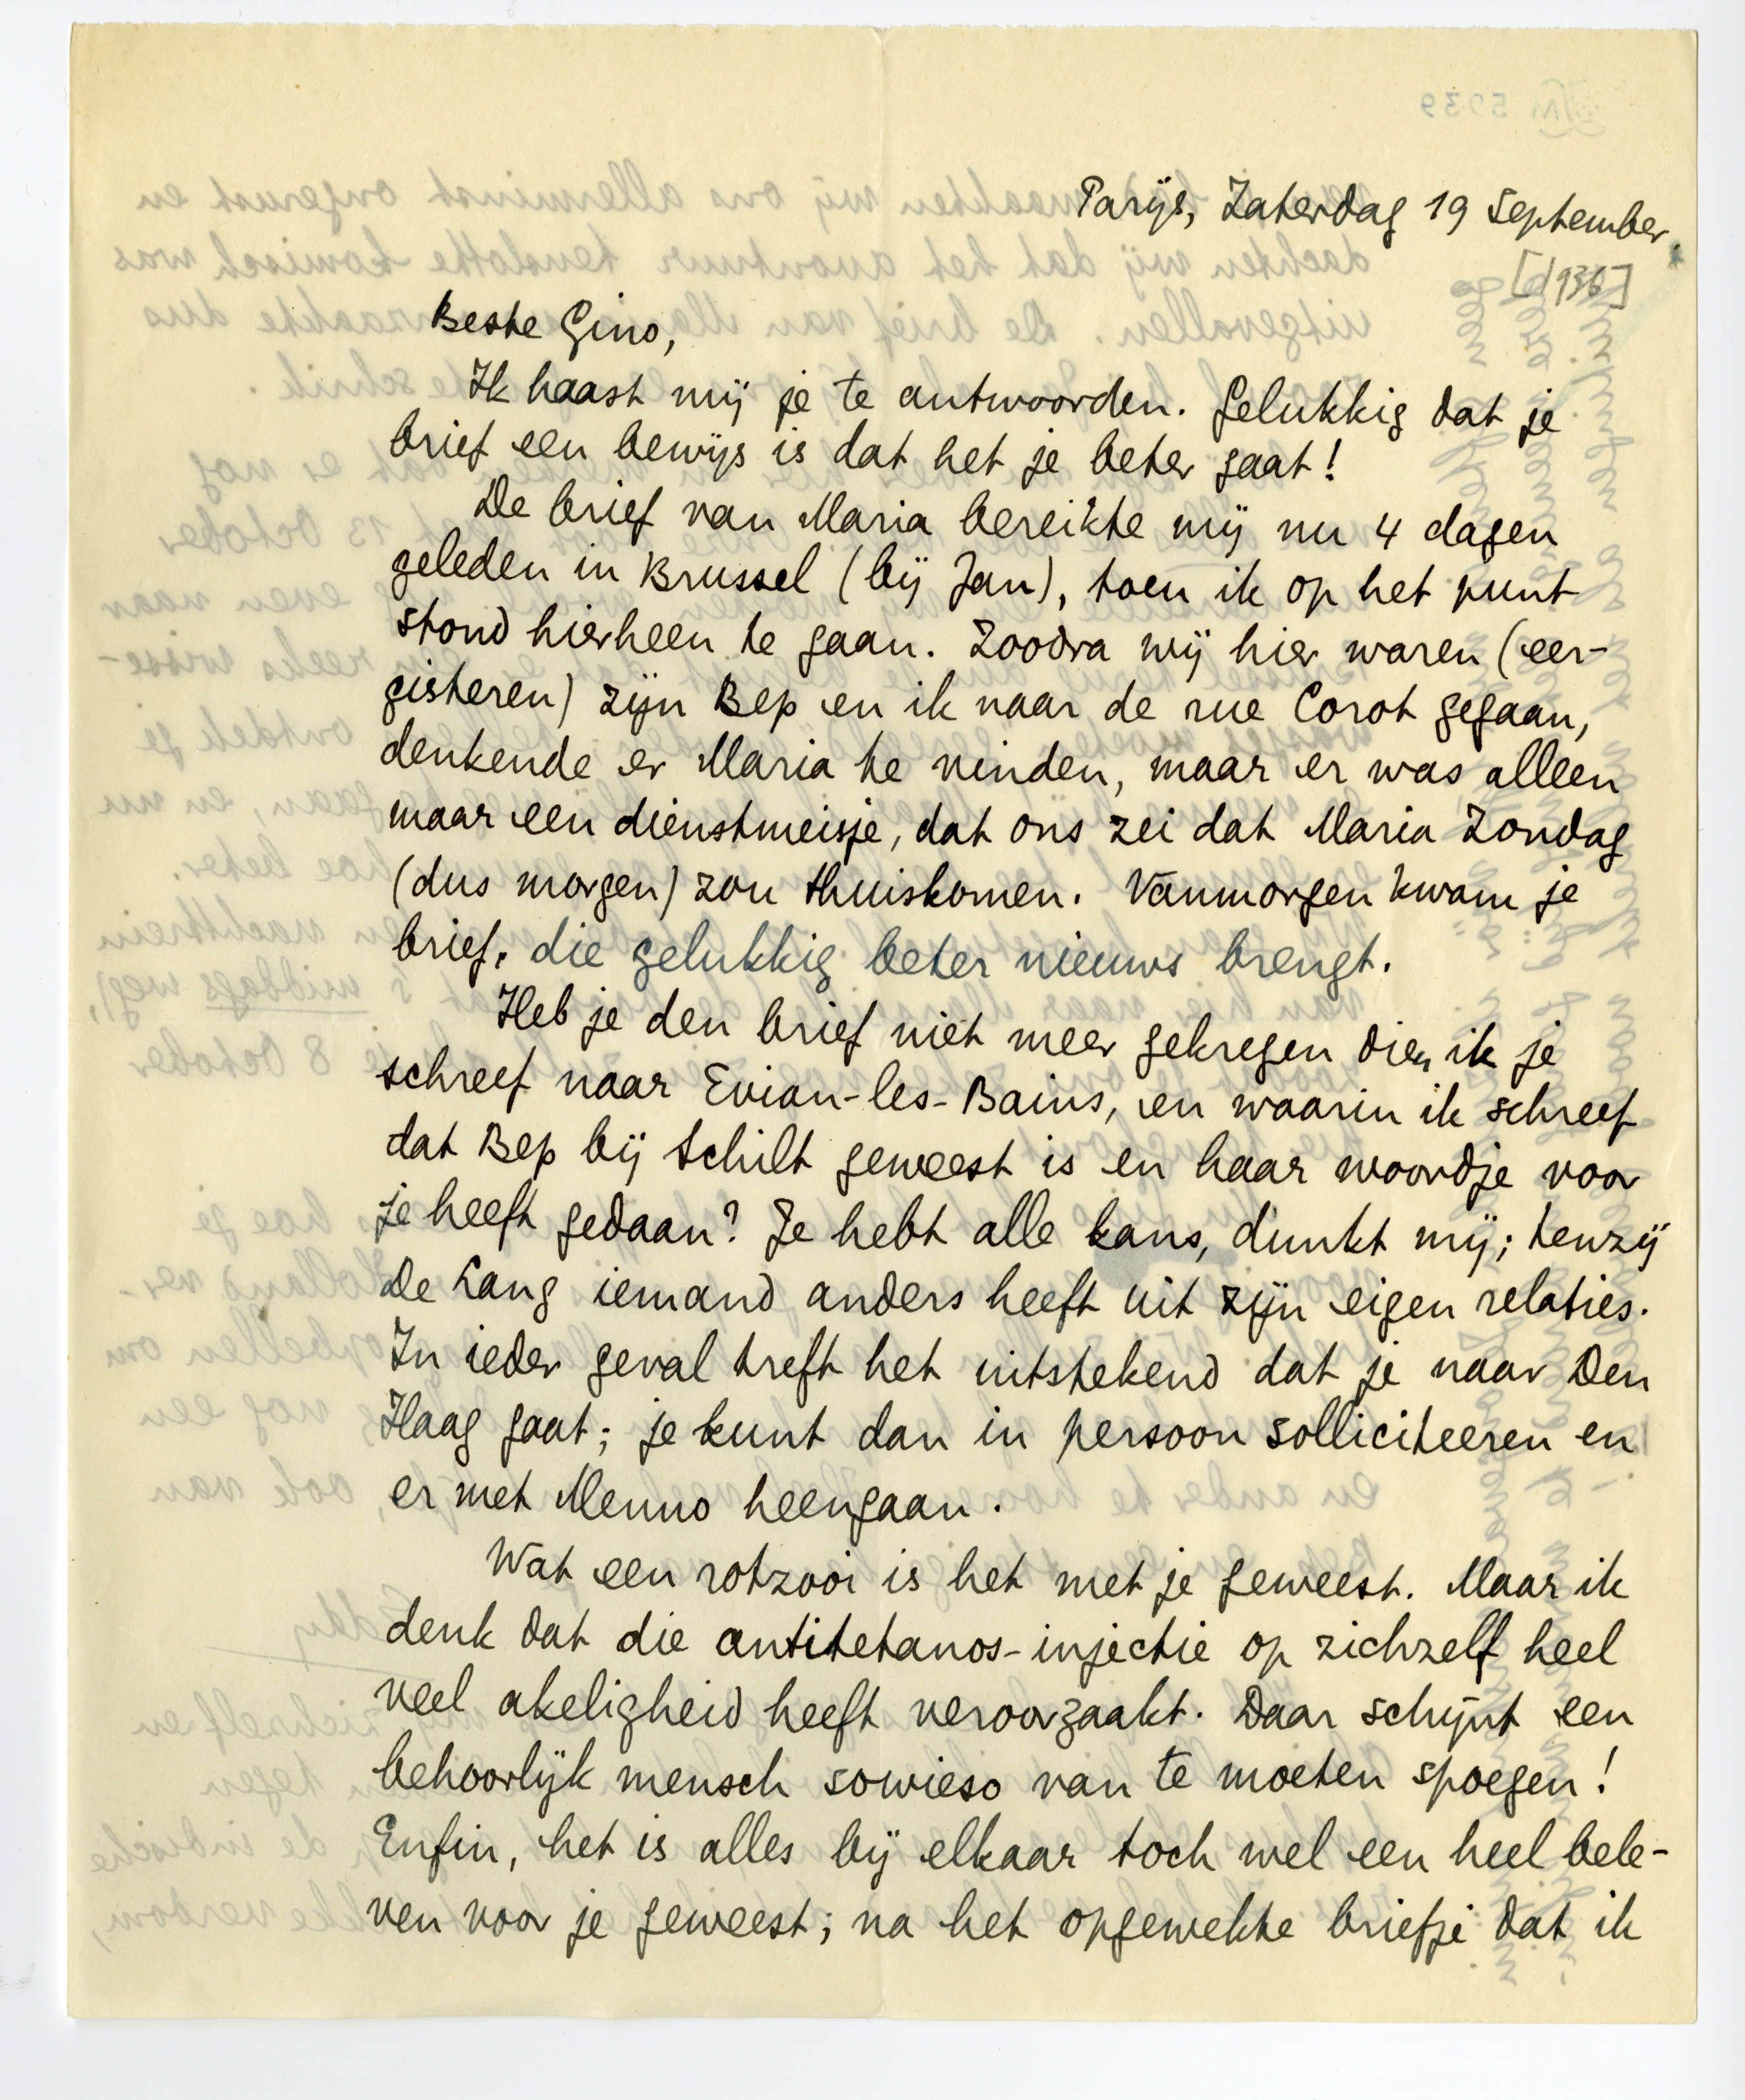 Parijs, Zaterdag 19 September
[1936]
Beste Gino,
Ik haast mij je te antwoorden. Gelukkig dat je
brief een bewijs is dat het je beter gaat!
De brief van Maria bereikte mij nu 4 dagen
geleden in Brussel (bij Jan), toen ik op het punt
stond hierheen te gaan. Zoodra wij hier waren (eer-
gisteren) zijn Bep en ik naar de rue Corot gegaan,
denkende er Maria te vinden, maar er was alleen
maar een dienstmeisje, dat ons zei dat Maria Zondag
(dus morgen) zou thuiskomen. Vanmorgen kwam je
brief, die gelukkig beter nieuws brengt.
Heb je den brief niet meer gekregen dien ik je
schreef naar Evian-les-Bains, en waarin ik schreef
dat Bep bij Schilt geweest is en haar woordje voor
je heeft gedaan? Je hebt alle kans, dunkt mij; tenzij
De Lang iemand anders heeft uit zijn eigen relaties.
In ieder geval treft het uitstekend dat je naar Den
Haag gaat; je kunt dan in persoon solliciteeren en
er met Menno heengaan.
Wat een rotzooi is het met je geweest. Maar ik
denk dat die antitetanos-injectie op zichzelf heel
veel akeligheid heeft veroorzaakt. Daar schijnt een
behoorlijk mensch sowieso van te moeten spoegen!
Enfin, het is alles bij elkaar toch wel een heel bele-
ven voor je geweest; na het opgewekte briefje dat ik